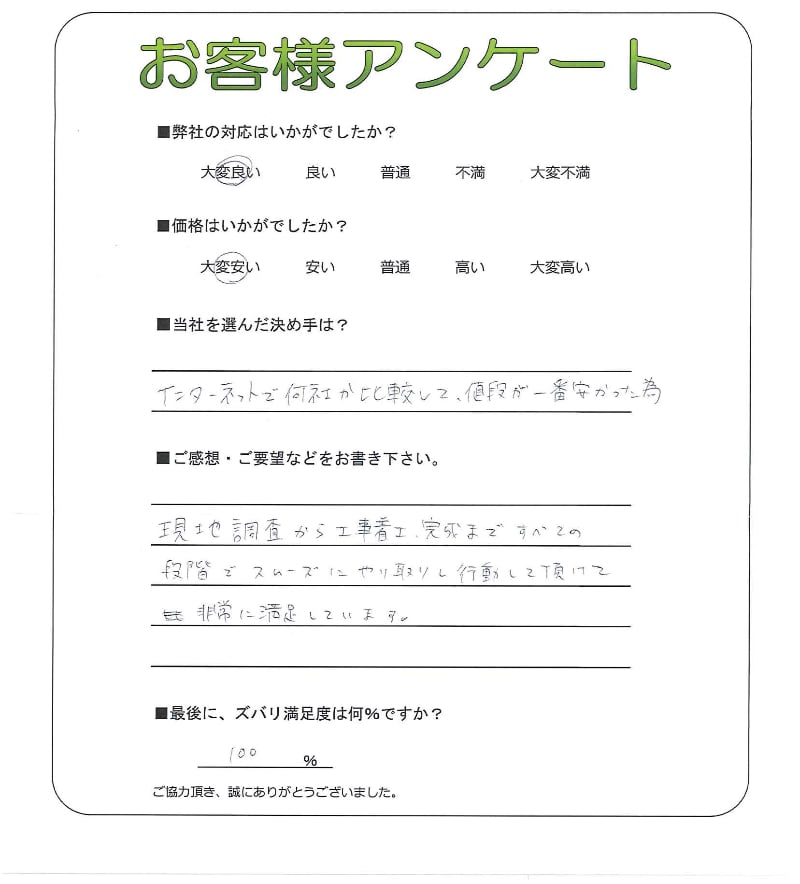 お客様アンケート
■弊社の対応はいかがでしたか？
大変良い 良い 普通 不満 大変不満
■価格はいかがでしたか？
大変安い 安い 普通 高い 大変高い
■当社を選んだ決め手は？
インターネットで何社か比較して、値段が一番安かった為
■ご感想・ご要望などをお書き下さい。
現地調査から工事着工、完成まですべての
段階でスムーズにやり取りし行動して頂けて
非常に満足しています。
■最後に、ズバリ満足度は何%ですか？
100 %
ご協力頂き、誠にありがとうございました。